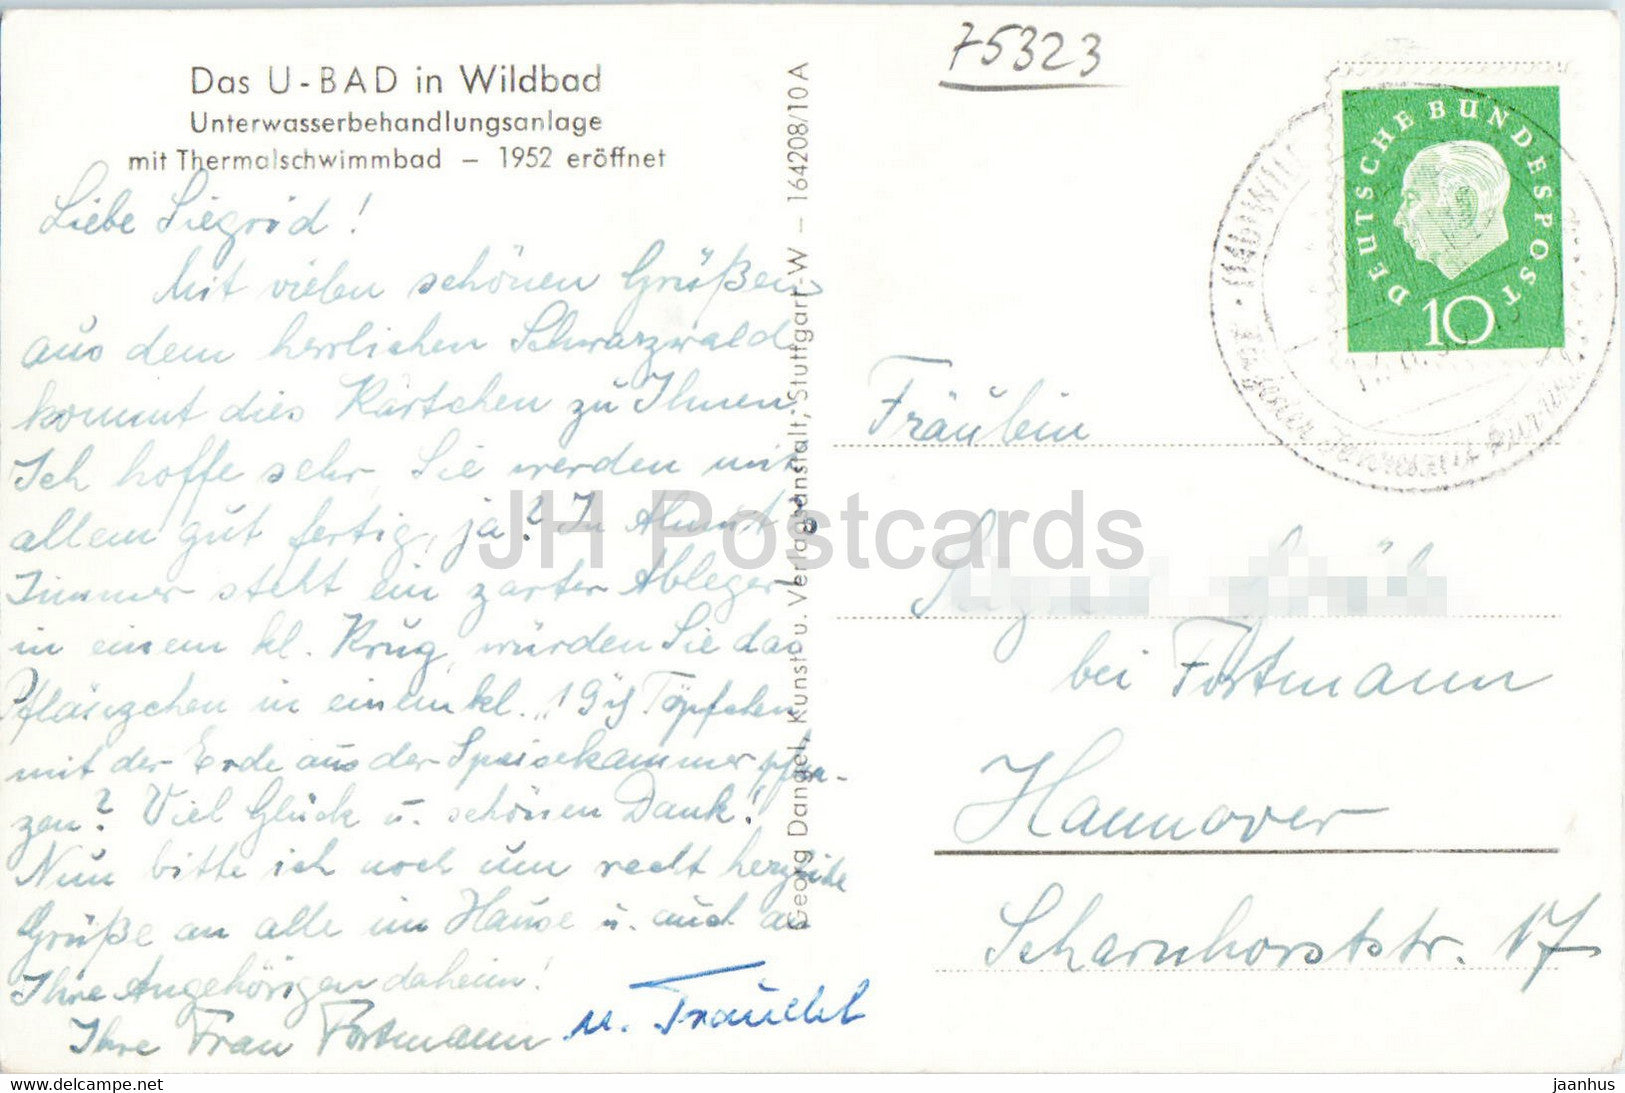 75323
Das U-BAD in Wildbad
Unterwasserbehandlungsanlage
mit Thermalschwimmbad – 1952 eröffnet
Liebe Siegrid!
Mit vielen schönen Grüßen
aus dem herrlichen Schwarzwald
kommt dies Kärtchen zu Ihnen.
Ich hoffe sehr, Sie werden mit
allem gut fertig, ja? In
Zimmer steht ein zarter Ableger
in einem kl. Krug, würden Sie das
Pflänzchen in einem kl. Töpfchen
mit der Erde aus der Speisekammer pflan-
zen? Viel Glück u. schönen Dank!
Nun bitte ich noch um recht herzliche
Grüße an alle im Hause u. auch an
Ihre Angehörigen daheim!
Ihre Frau Fortmann
Georg Dangel, Kunst- u. Verlagsanstalt, Stuttgart-W – 164208/10A
DEUTSCHE BUNDESPOST
10
Fräulein
bei Fortmann
Hannover
Scharnhorststr. 17
JH Postcards
www.delcampe.net
jaanhus